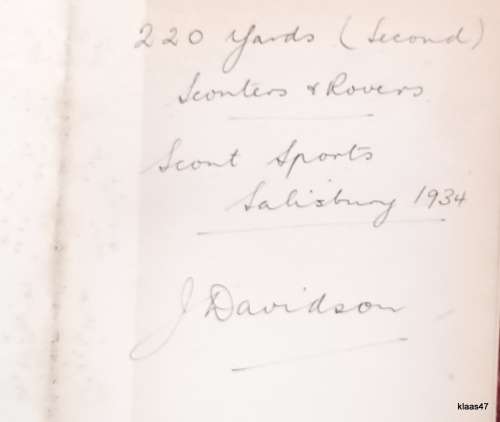 220 Yards (Second)
Scouters & Rovers
Scout Sports
Salisbury 1934
J Davidson
klaas47